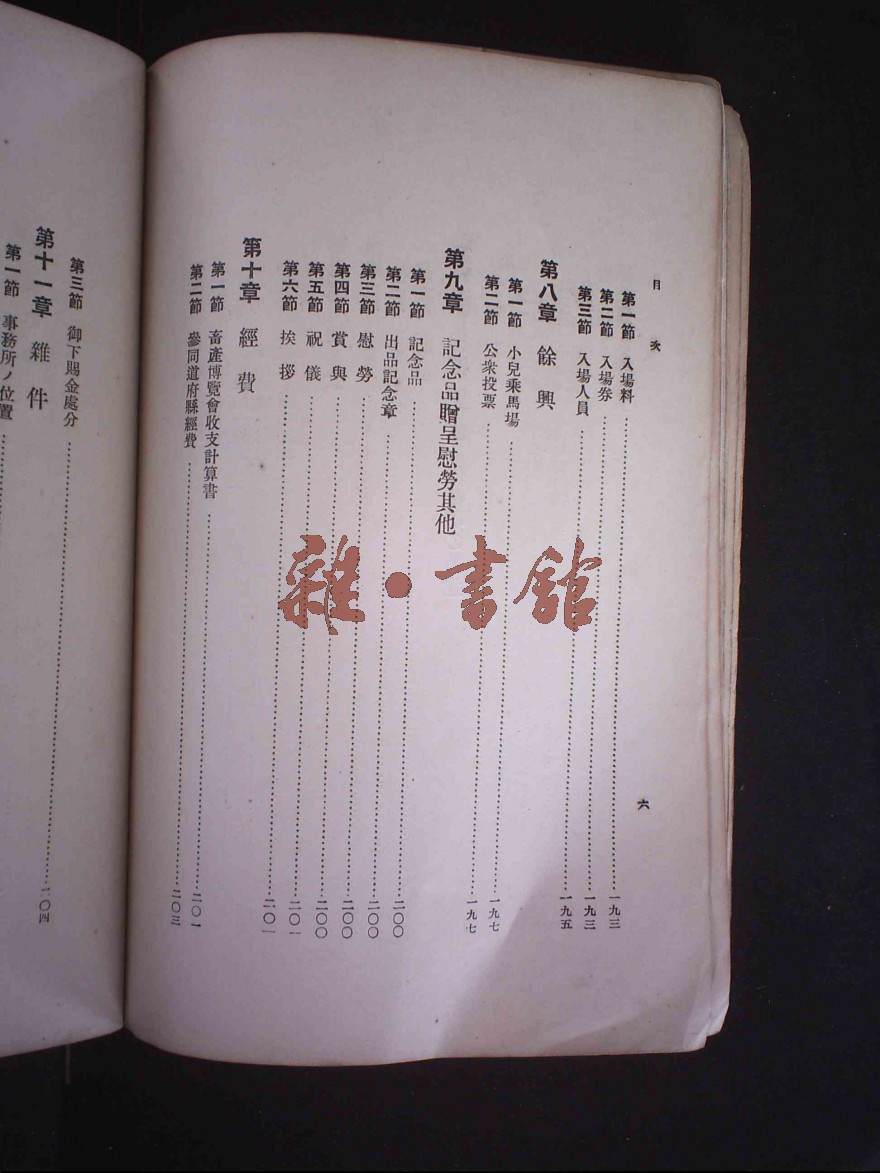 目次
六
第一節 入場料………一九三
第二節 入場券………一九三
第三節 入場人員………一九五
第八章 餘興
第一節 小兒乘馬場………一九七
第二節 公衆投票………一九七
第九章 記念品贈呈慰勞其他
第一節 記念品………二〇〇
第二節 出品記念章………二〇〇
第三節 慰勞………二〇〇
第四節 賞與………二〇〇
第五節 祝儀………二〇一
第六節 挨拶………二〇一
第十章 經費
第一節 畜產博覽會收支計算書………二〇一
第二節 參同道府縣經費………二〇三
第三節 御下賜金處分………二〇四
第十一章 雜件
第一節 事務所ノ位置
雜·書館